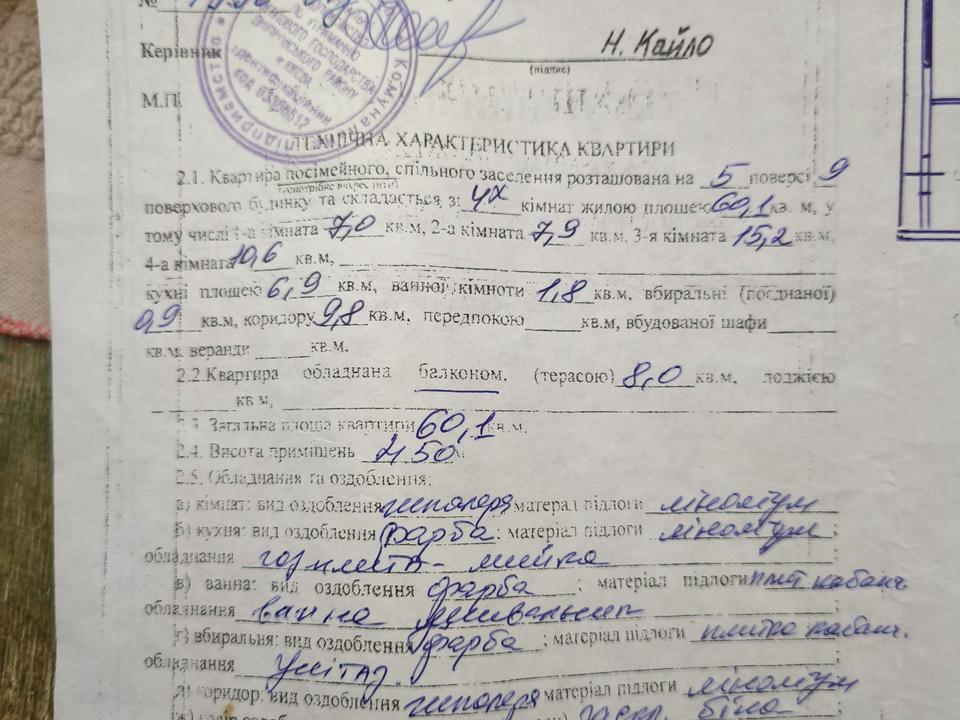 №
Керівник Н. Кайло
(підпис)
М.П.
ТЕХНІЧНА ХАРАКТЕРИСТИКА КВАРТИРИ
2.1. Квартира посімейного, спільного заселення розташована на 5 поверсі 9
(непотрібне викреслити)
поверхового будинку та складається з: 4х кімнат жилою площею 60,1 кв. м, у
тому числі 1-а кімната 7,0 кв.м, 2-а кімната 7,9 кв.м, 3-я кімната 15,2 кв.м,
4-а кімната 10,6 кв.м,
кухні площею 6,9 кв.м, ванної кімноти 1,8 кв.м, вбиральні (поєднаної)
0,9 кв.м, коридору 9,8 кв.м, передпокою кв.м, вбудованої шафи
кв.м, веранди кв.м.
2.2.Квартира обладнана балконом, (терасою) 8,0 кв.м, лоджією
кв м,
2.3. Загальна площа квартири 60,1 кв.м.
2.4. Висота приміщень 450
2.5. Обладнання та оздоблення:
а) кімнат: вид оздоблення шпалеря матерал підлоги ліноліум
б) кухня: вид оздоблення фарба; матеріал підлоги ліноліум;
обладнання газ плита - мийка
в) ванна: вид оздоблення фарба; матеріал підлоги плит кабанч
обладнання ванна умивальник
г) вбиральня: вид оздоблення фарба; матеріал підлоги плитка кабанч.
обладнання Унітаз;
д) коридор: вид оздоблення шпалеря матеріал підлоги ліноліум
біла